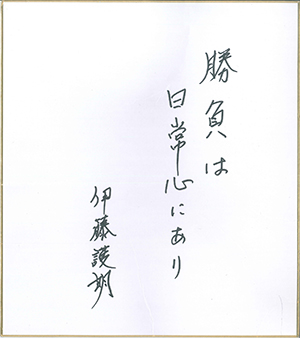 勝負は
日常心にあり
伊藤護朗